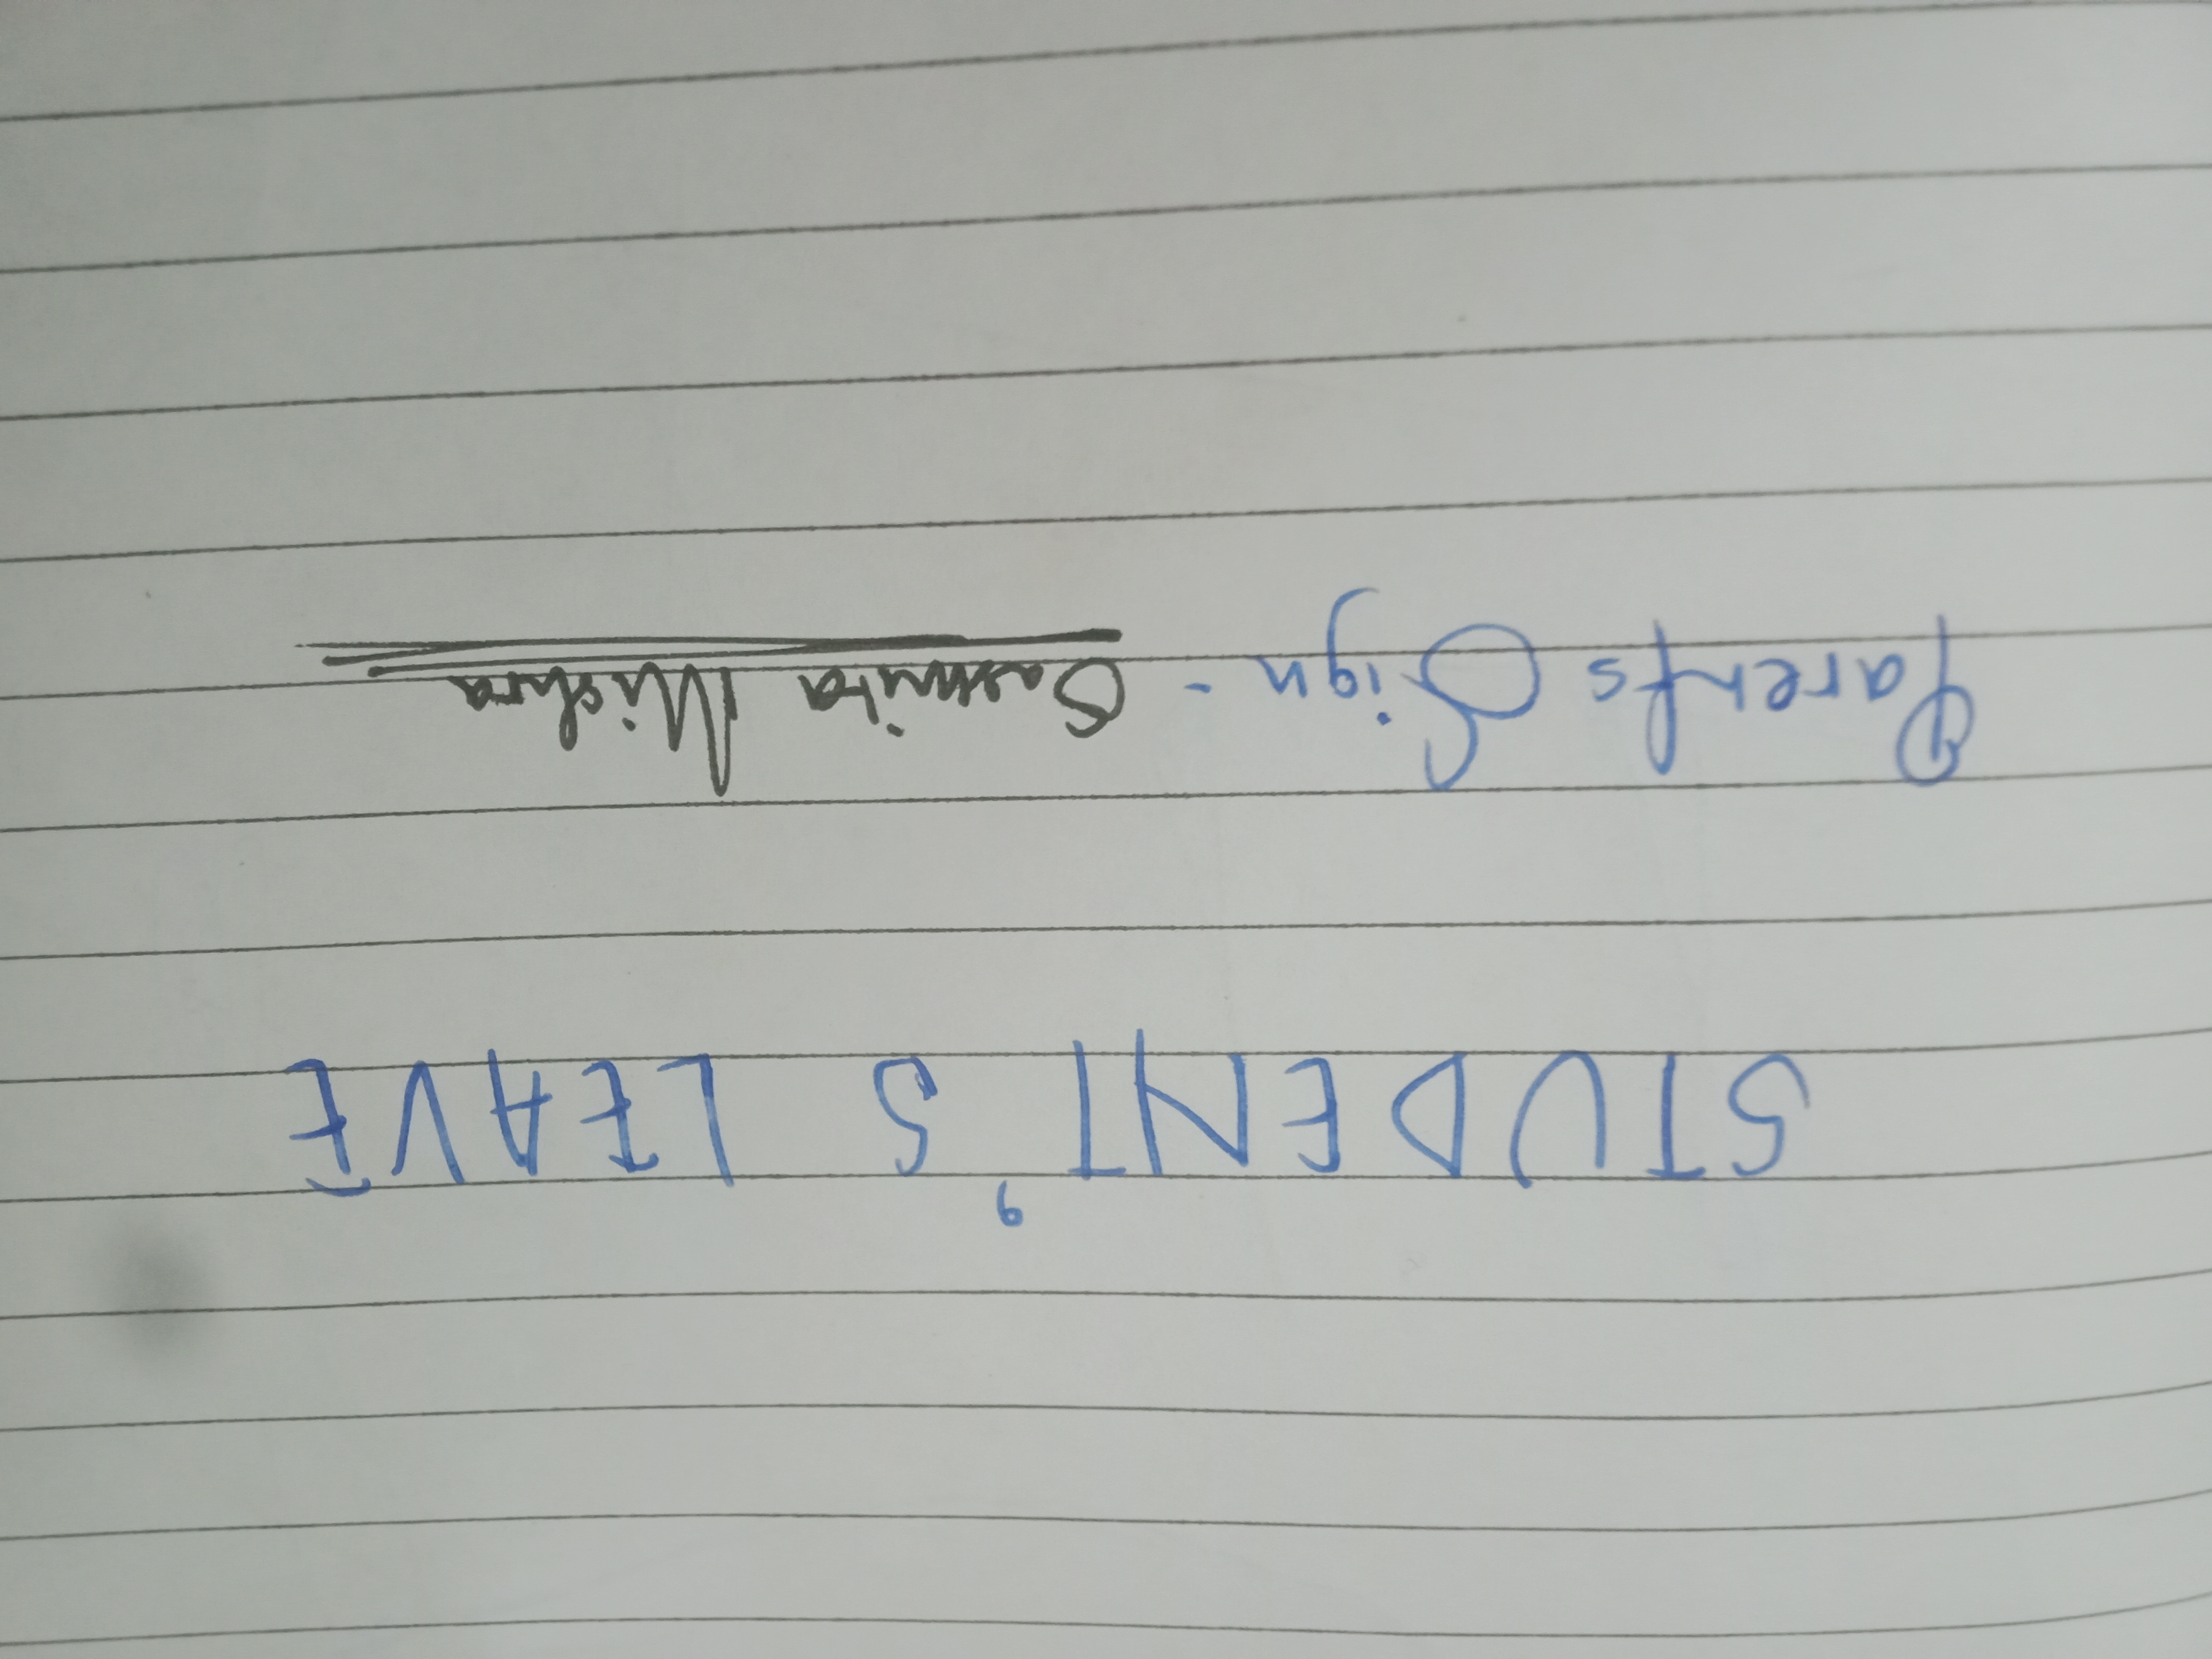 STUDENT'S LEAVE
Parents Sign - Sasmita Mishra